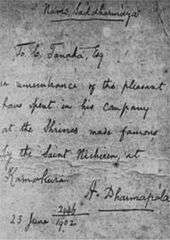 "Namo Saddharmaya"
To C. Tanaka, Esq
in remembrance of the pleasant
have spent in his company
at the Shrines made famous
by the Saint Nichiren, at
Kamakura.
H. Dharmapala
23 June 2446
1902